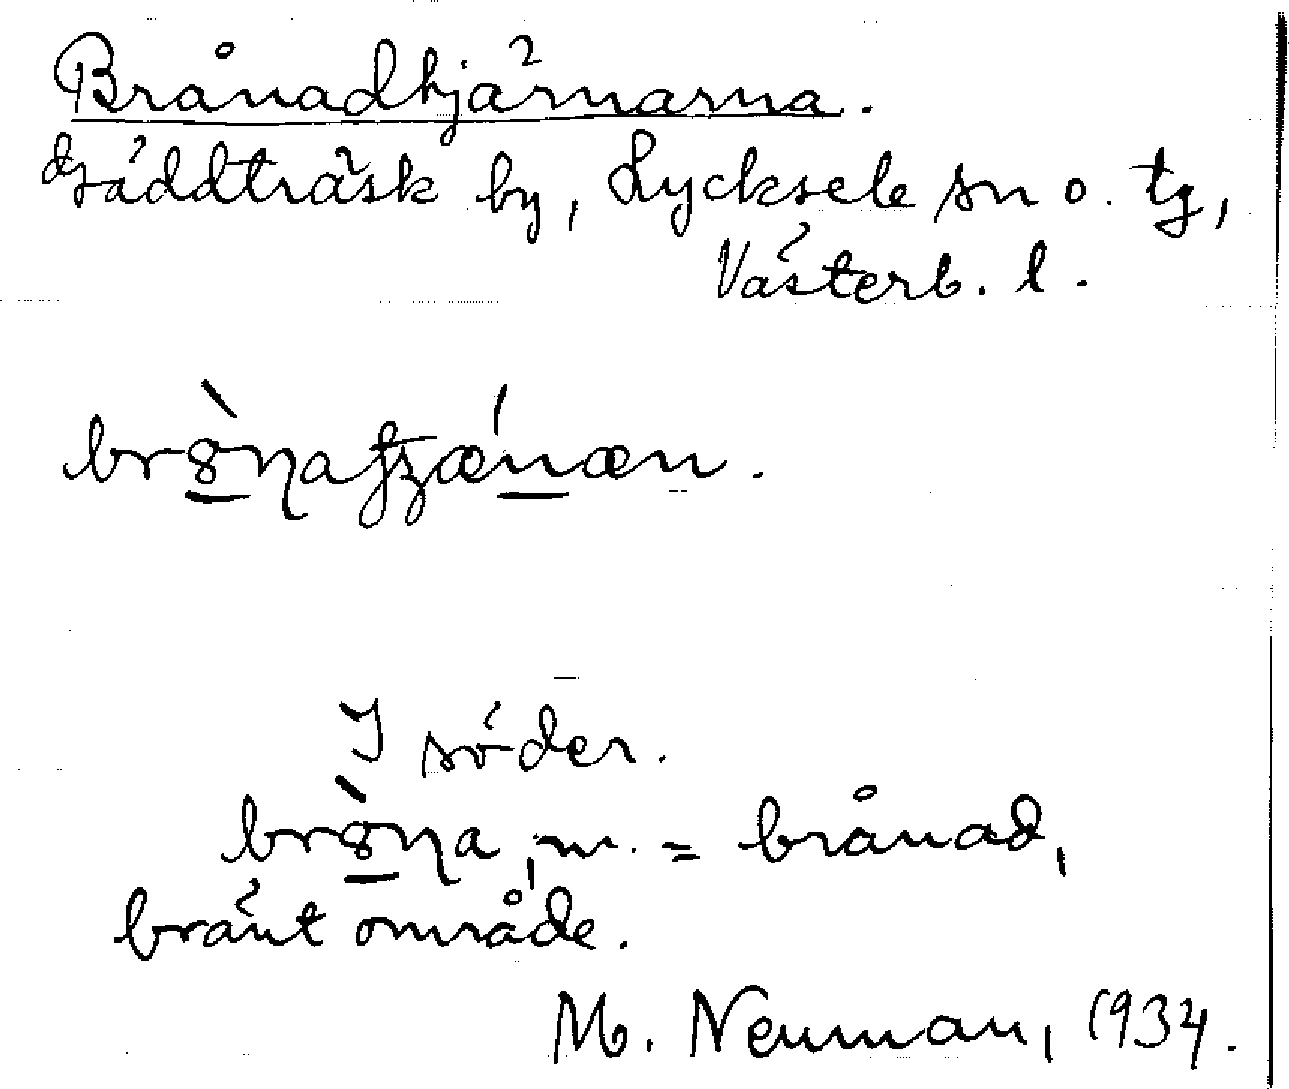 Brånadkjärnarna.
Gäddträsk by, Lycksele sn o. tg,
Västerb. l.
I söder.
m. = brånad,
bränt område.
M. Neuman, 1934.